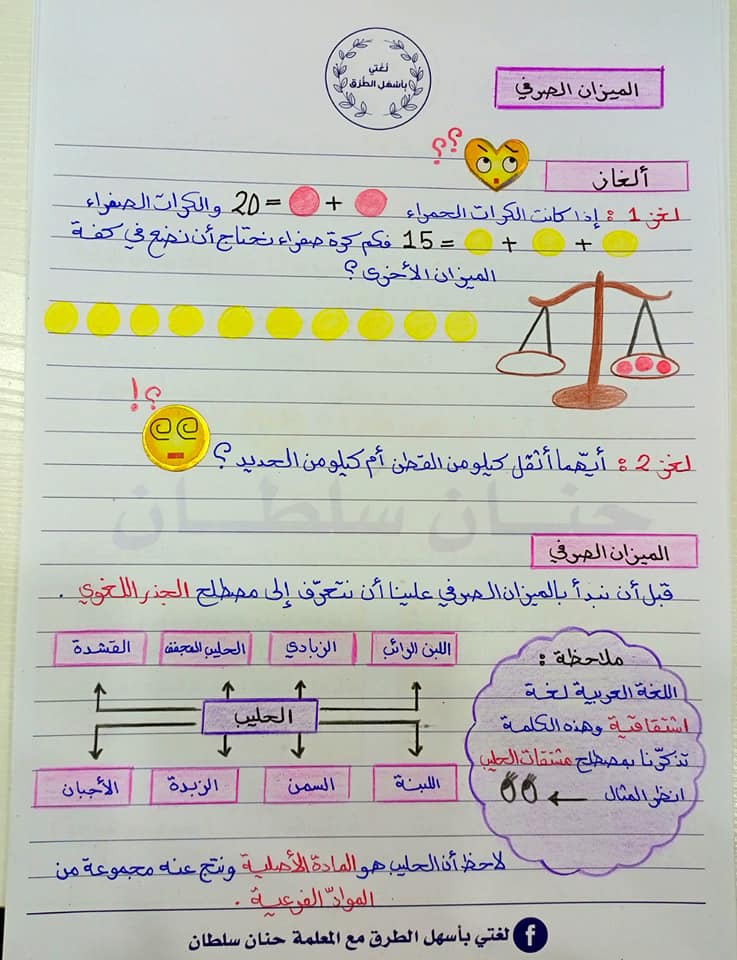 لغتي
بأسهل الطرق
الميزان الصرفي
؟؟
ألغاز
لغز 1 : إذا كانت الكرات الحمراء + = 20 والكرات الصفراء
+ + = 15 فكم كرة صفراء نحتاج أن نضع في كفة
الميزان الأخرى ؟
؟!
لغز 2 : أيّهما أثقل كيلو من القطن أم كيلو من الحديد ؟
حنان سلطان
الميزان الصرفي
قبل أن نبدأ بالميزان الصرفي علينا أن نتعرّف إلى مصطلح الجذر اللغوي .
اللبن الرائب الزبادي الحليب المجفف القشدة
الحليب
اللبنة السمن الزبدة الأجبان
ملاحظة :
اللغة العربية لغة
اشتقاقية وهذه الكلمة
تذكّرنا بمصطلح مشتقات الحليب
انظر المثال
لاحظ أن الحليب هو المادة الأصلية ونتج عنه مجموعة من
الموادّ الفرعية .
لغتي بأسهل الطرق مع المعلمة حنان سلطان